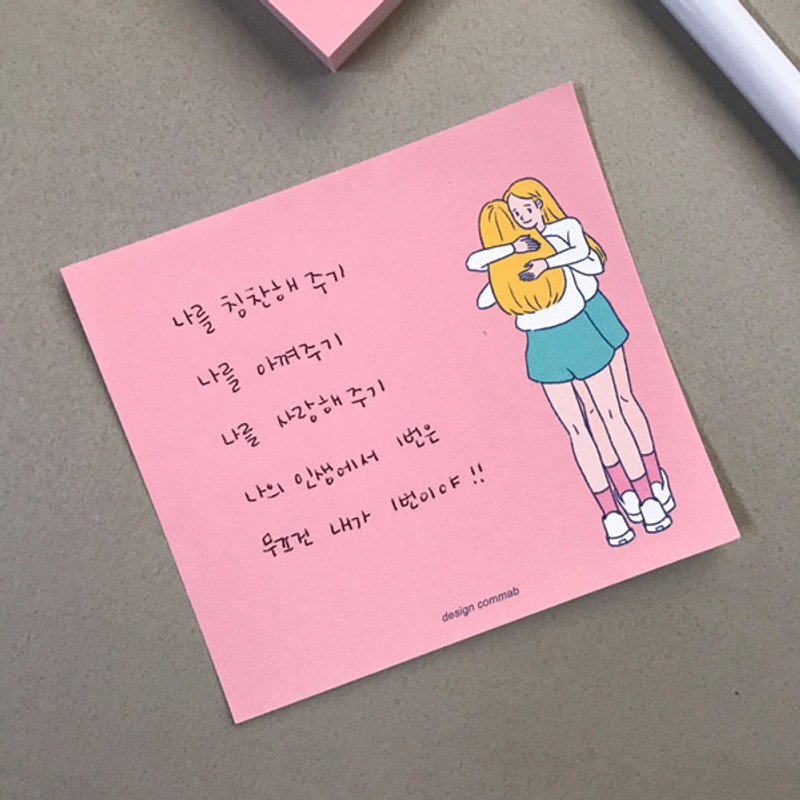 나를 칭찬해 주기
나를 아껴주기
나를 사랑해 주기
나의 인생에서 1번은
무표건 내가 1번이야!!
design commab